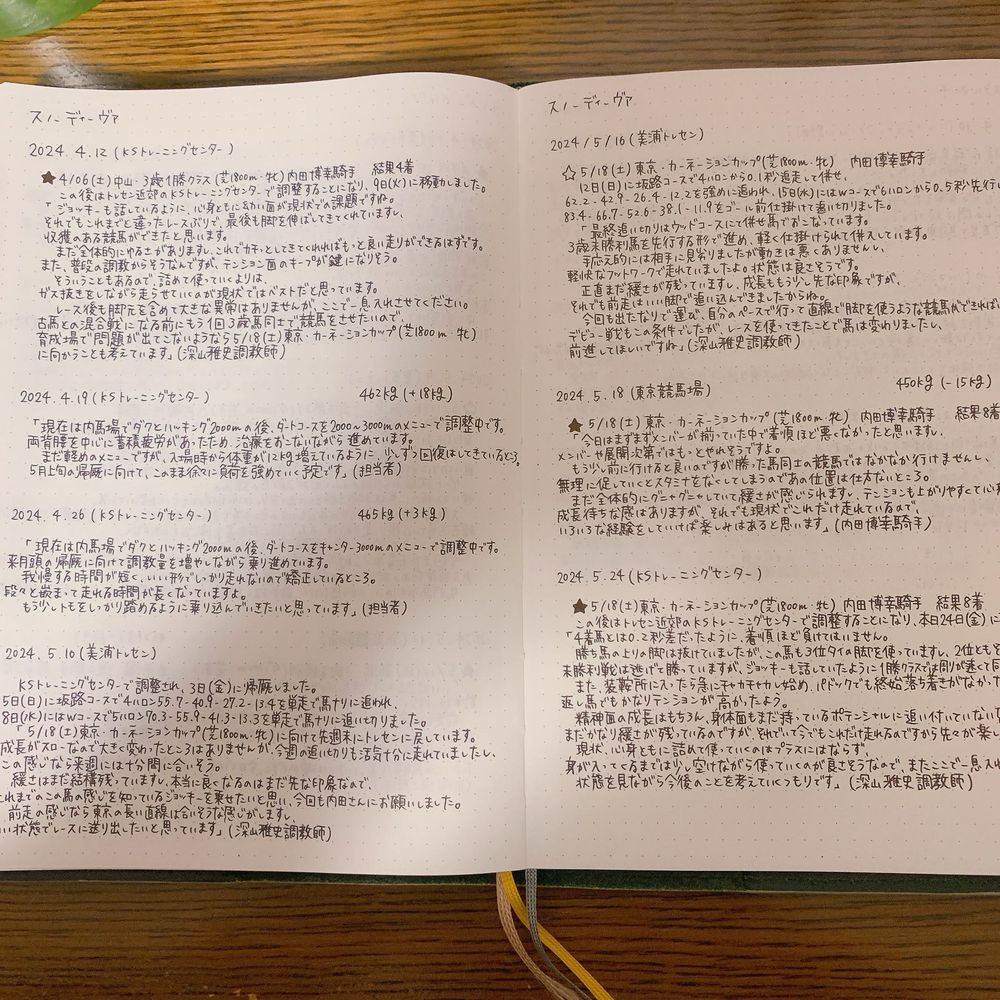 スノーディーヴァ
2024. 4.12 (KSトレーニングセンター)
★4/06(土)中山・3歳1勝クラス(芝1800m・牝) 内田博幸騎手 結果4着
この後はトレセン近郊のKSトレーニングセンターで調整することになり、9日(火)に移動しました。
「ジョッキーも話しているように、心身ともに幼い面が現状での課題ですね。
それでもこれまでと違ったレースぶりで、最後も脚を伸ばしてきてくれていますし、
収穫のある競馬ができたと思います。
まだ全体的にやさがありますし、これでカチッとしてきてくれればもっと良い走りができるはずです。
また、普段の調教からそうなんですが、テンション面のキープが鍵になりそう。
そういうこともあるので、詰めて使っていくよりは、
ガス抜きをしながら走らせていくのが現状ではベストだと思っています。
レース後も脚元を含めて大きな異常はありませんが、ここで一息入れさせてください。
古馬との混合戦になる前にもう1回3歳馬同士で競馬をさせたいので、
育成場で問題が出てこないようなら5/18(土)東京・カーネーションカップ(芝1800m・牝)
に向かうことも考えています」(深山雅史調教師)
2024. 4.19 (KSトレーニングセンター) 462kg (+18kg)
「現在は内馬場でダクとハッキング2000mの後、ダートコースを2000〜3000mのメニューで調整中です。
両背腰を中心に蓄積疲労があったため、治療をおこないながら進めています。
まだ軽めのメニューですが、入場時から体重が12kg増えているように、少しずつ回復はしてきているところ。
5月上旬の帰厩に向けて、このまま徐々に負荷を強めていく予定です」(担当者)
2024. 4.26 (KSトレーニングセンター) 465kg (+3kg)
「現在は内馬場でダクとハッキング2000mの後、ダートコースをキャンター3000mのメニューで調整中です。
来月頭の帰厩に向けて調教量を増やしながら乗り進めています。
我慢する時間が短く、いい形でしっかり走れないので矯正しているところ。
段々と嵌まって走れる時間が長くなっていますよ。
もう少しトモをしっかり踏めるように乗り込んでいきたいと思っています」(担当者)
2024. 5.10 (美浦トレセン)
KSトレーニングセンターで調整され、3日(金)に帰厩しました。
5日(日)に坂路コースで4ハロン55.7-40.9-27.2-13.4を単走で馬ナリに追われ、
8日(水)にはWコースで5ハロン70.3-55.9-41.3-13.3を単走で馬ナリに追い切りました。
「5/18(土)東京・カーネーションカップ(芝1800m・牝)に向けて先週末にトレセンに戻しています。
成長がスローなので大きく変わったところはありませんが、今週の追い切りも活気十分に走れていましたし、
この感じなら来週には十分間に合いそう。
緩さはまだ結構残っていますし、本当に良くなるのはまだ先な印象なので、
これまでのこの馬の感じを知っているジョッキーを乗せたいと思い、今回も内田さんにお願いしました。
前走の感じなら東京の長い直線は合いそうな感じがしますし、
いい状態でレースに送り出したいと思っています」(深山雅史調教師)
スノーディーヴァ
2024/5/16 (美浦トレセン)
☆5/18(土)東京・カーネーションカップ(芝1800m・牝) 内田博幸騎手
12日(日)に坂路コースで4ハロンから0.1秒追走して併せ、
62.2-42.9-26.4-12.2を強めに追われ、15日(水)にはWコースで6ハロンから0.5秒先行し
83.4-66.7-52.6-38.1-11.9をゴール前仕掛けで追い切りました。
「最終追い切りはウッドコースにて併せ馬でおこなっています。
3歳未勝利馬を先行する形で進め、軽く仕掛けられて併入しています。
手応え的には相手に見劣りましたが動きは悪くありませんし、
軽快なフットワークで走れていましたよ。状態は良さそうです。
正直まだ緩さが残っていますし、成長ももう少し先な印象ですが、
それでも前走はいい脚で追い込んできましたからね。
今回も出たなりで運び、自分のペースで行って直線で脚を使うような競馬ができれば
デビュー戦もこの条件でしたが、レースを使ってきたことで馬は変わりましたし、
前進してほしいですね」(深山雅史調教師)
2024. 5.18 (東京競馬場) 450kg (-15kg)
★5/18(土)東京・カーネーションカップ(芝1800m・牝) 内田博幸騎手 結果8着
「今日はまずまずメンバーが揃っていた中で着順ほど悪くなかったと思いますし、
メンバーや展開次第ではもっとやれそうですよ。
もう少し前に行けると良いのですが勝った馬同士の競馬ではなかなか行けませんし、
無理に促していくとスタミナをなくしてしまうのであの位置は仕方ないところ。
まだ全体的にグニャグニャしていて緩さが感じられますし、テンションも上がりやすくて心
成長待ちな感はありますが、それでも現状でこれだけ走れているので、
いろいろな経験をしていけば楽しみはあると思います」(内田博幸騎手)
2024. 5.24 (KSトレーニングセンター)
★5/18(土)東京・カーネーションカップ(芝1800m・牝) 内田博幸騎手 結果8着
この後はトレセン近郊のKSトレーニングセンターで調整することになり、本日24日(金)に
「4着馬とは0.2秒差だったように、着順ほど負けてはいません。
勝ち馬の上りの脚は抜けていましたが、この馬も3位タイの脚を使っていますし、2位とも
未勝利戦は逃げて勝っていますが、ジョッキーも話していたように1勝クラスでは周りが速くて
また、装鞍所に入ったら急にチャカチャカし始め、パドックでも終始落ち着きがなか
返し馬でもかなりテンションが高かったよう。
精神面の成長はもちろん、身体面もまだ持っているポテンシャルに追い付いていない
まだかなり緩さが残っているのですが、それでいて今でもこれだけ走れるのですから先々が楽し
現状、心身ともに詰めて使っていくのはプラスにはならず、
身が入ってくるまでは少し空けながら使っていくのが良さそうなので、またここで一息入
状態を見ながら今後のことを考えていくつもりです」(深山雅史調教師)